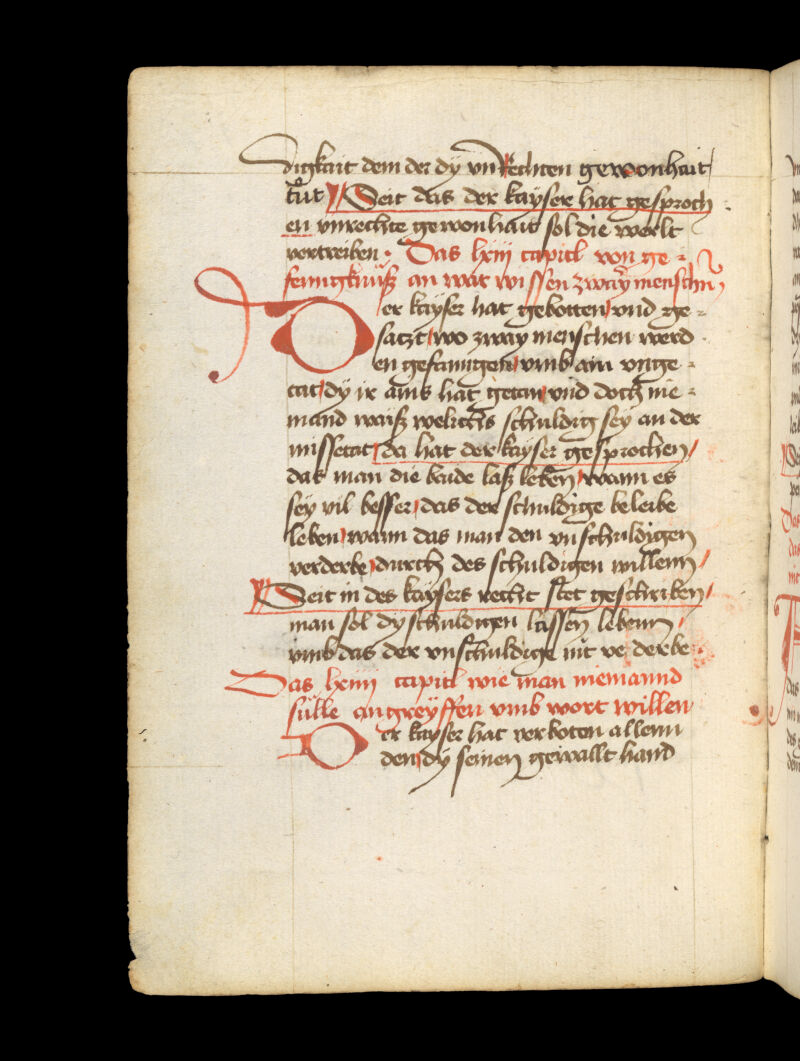 digkait dem der dy vnRechten gewonhait
tůt Seit das der kayser hat gesproch
en vnrechte gewonhait sol die werlt
vertreiben · Das lxiii capitl von ge-
fenngknüß an wär wissen zway menschn
Der kayser hat gebotten vnd ge-
satzt wo zway menschen werd
en gefanngen vmb ain vnge
tat dy ir ains hat getan vnd doch nie-
mand waiß welichs schuldig sey an der
missetat da hat der kayser gesprochen
das man die baide laß leben wann es
sey vil besser das der schuldige beleibe
leben wann das man den vnschuldigen
verderbe durch des schuldigen willenn
Seit in des kaysers recht stet geschriben
man sol dy schuldigen lassen lebenn
vmb das der vnschuldige nit verderbe ·
Das lxiiii capitl wie man niemannd
sülle angreyffen vmb wort willen
Der kayser hat verboten allenn
den dy seinen gewallt hand